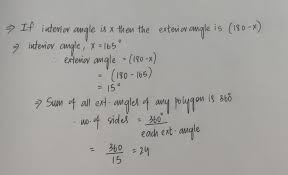 ⇒ If interior angle is x then the exterior angle is (180-x)
⇒ interior angle, x = 165°
∴ exterior angle = (180-x)
= (180-165)
= 15°
⇒ Sum of all ext. angles of any polygon is 360°
∴ no. of sides = 360° / each ext. angle
= 360 / 15 = 24